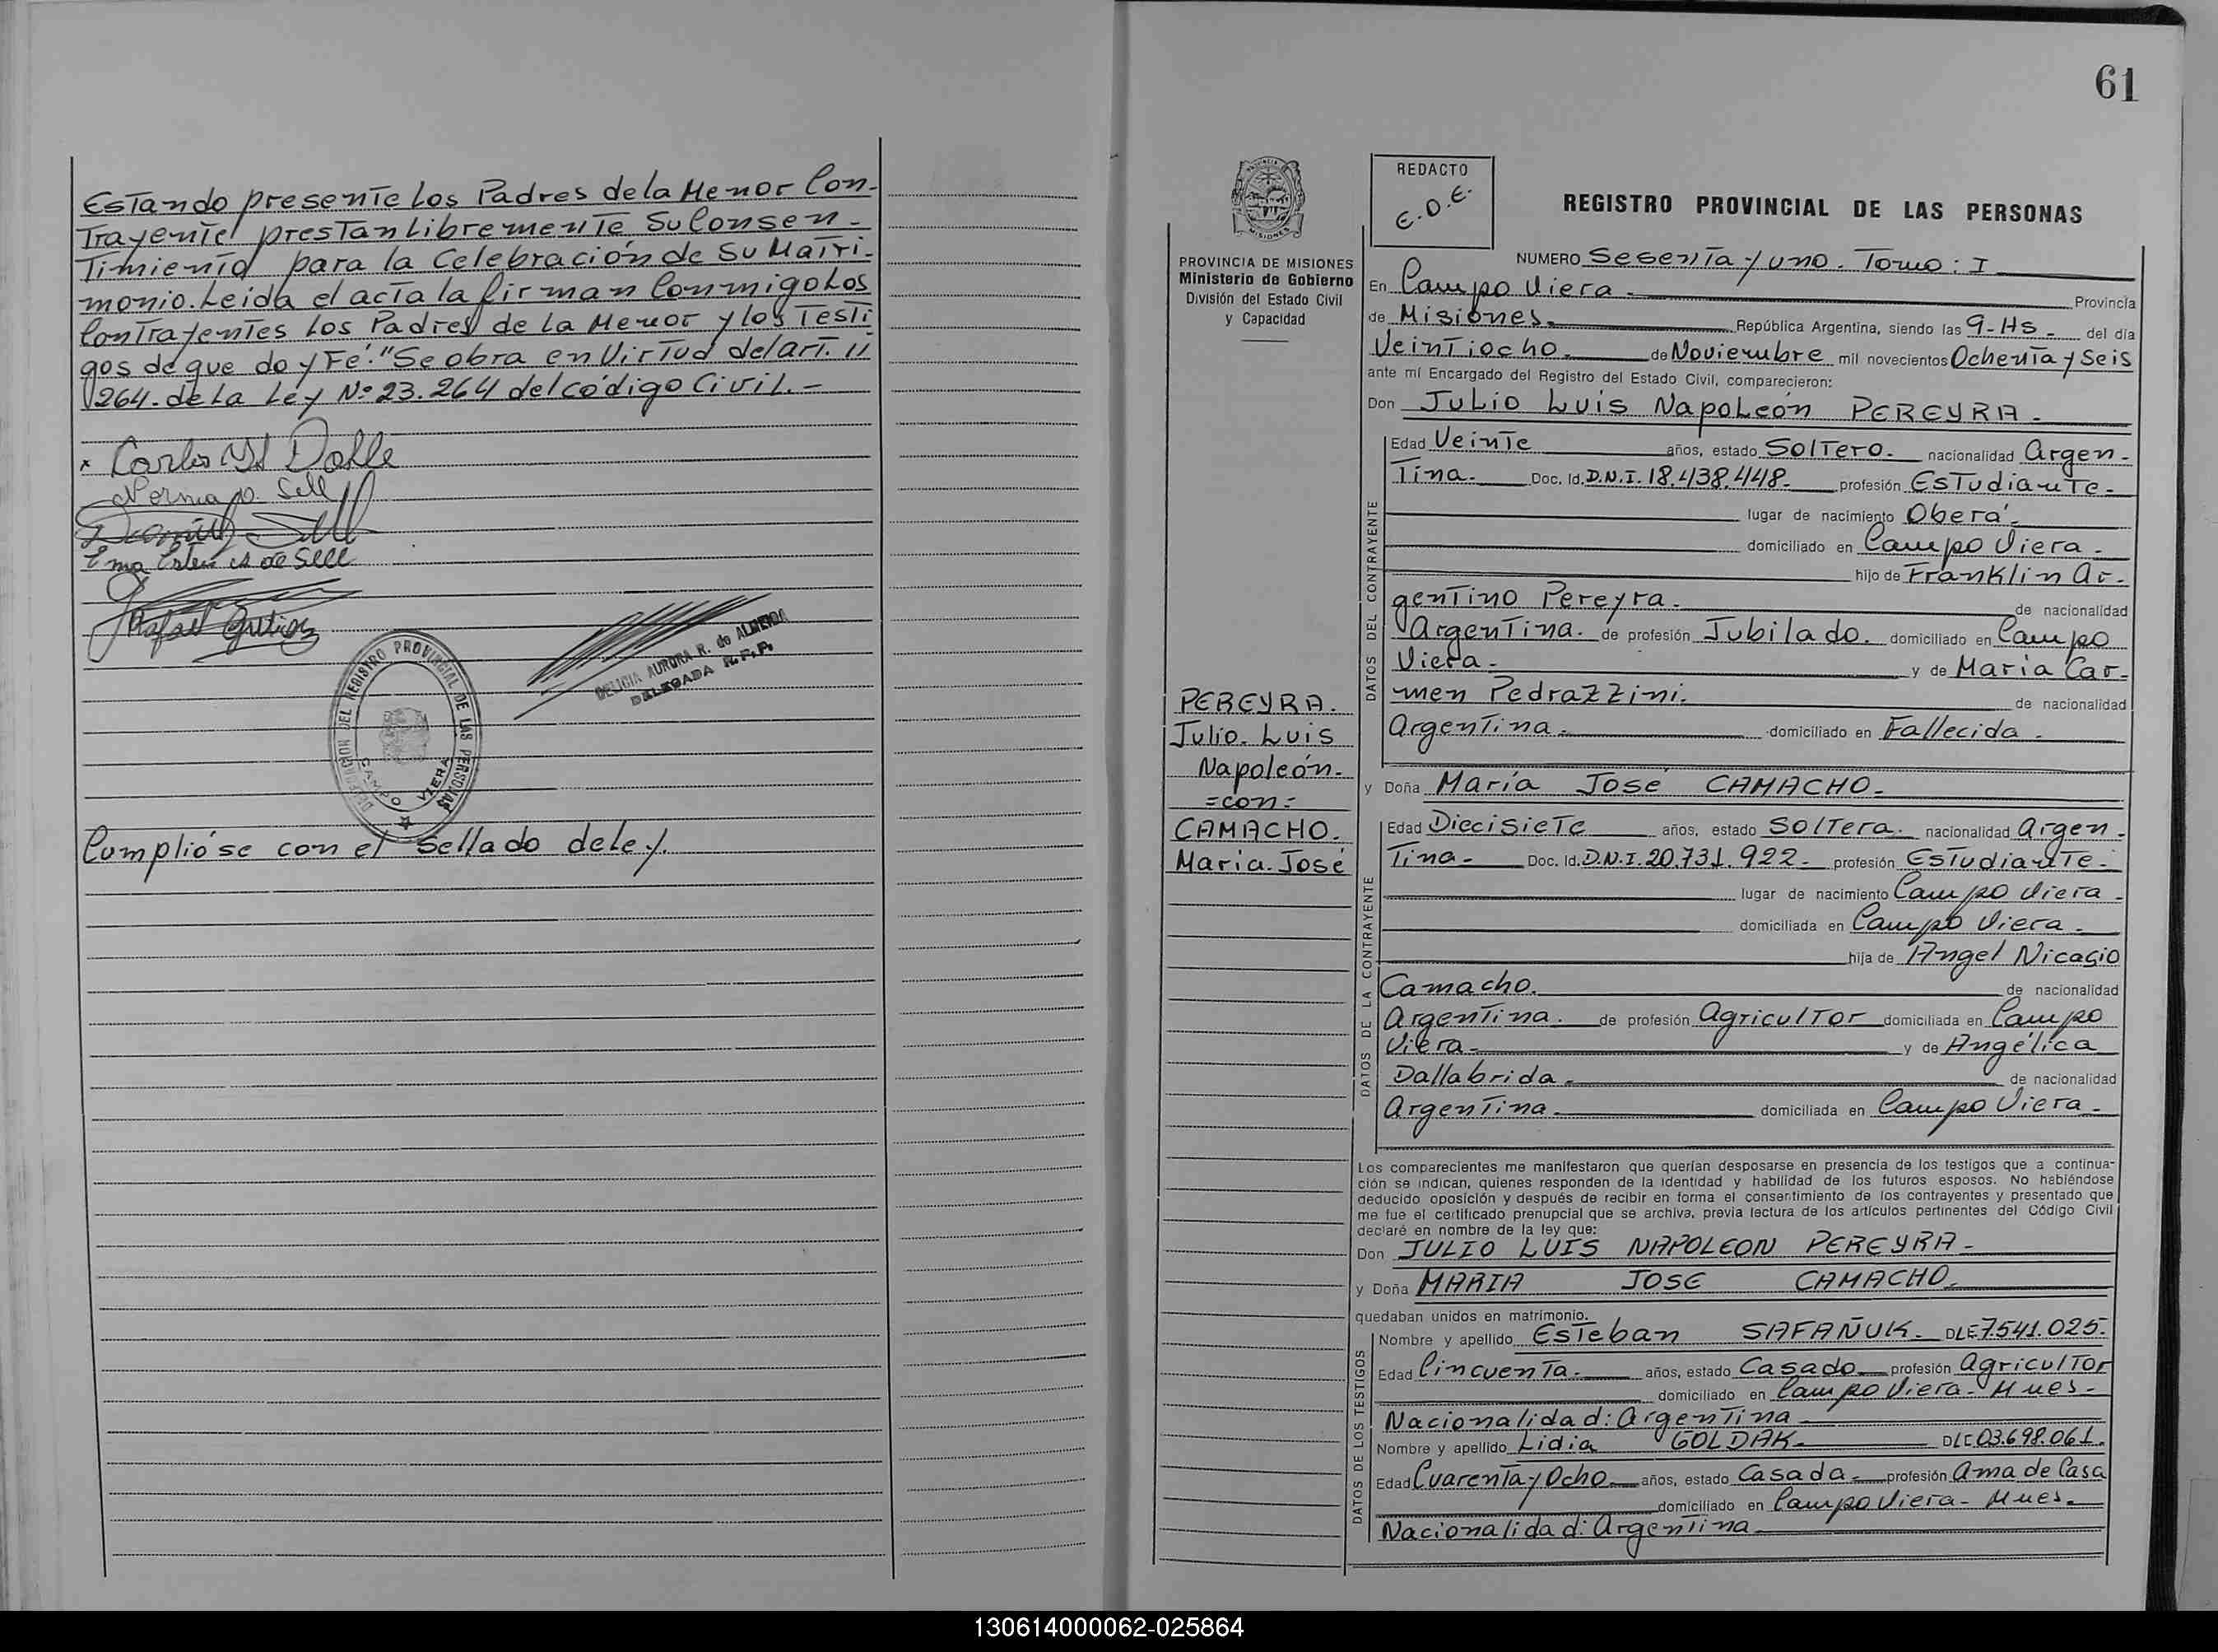 Estando presente los Padres de la Menor Con-
Trayente prestan libremente Su Consen-
Timiento para la Celebración de Su Matri-
monio. Leida el acta la firman Conmigo Los
Contrayentes los Padres de la Menor y los Testi
gos de que doy Fé. "Se obra en Virtud del art. 11
264. de La Ley Nº 23.264 del código Civil.-
x Carlos Dolle
Norma Sell
Ema de Sell
Rafael
DELICIA AURORA R. de ALMEIDA
DELEGADA R.P.P.
DELEGACION DEL REGISTRO PROVINCIAL DE LAS PERSONAS
CAMPO VIERA
Cumplióse con el Sellado de Ley.
61
PROVINCIA
MISIONES
PROVINCIA DE MISIONES
Ministerio de Gobierno
División del Estado Civil
y Capacidad
PEREYRA.
Julio. Luis
Napoleón.
=con=
CAMACHO.
María. José
REDACTO
E.D.E.
REGISTRO PROVINCIAL DE LAS PERSONAS
NUMERO Sesenta y uno. Tomo: I
En Campo Viera - Provincia
de Misiones. República Argentina, siendo las 9-Hs - del día
Veintiocho. de Noviembre mil novecientos Ochenta y Seis
ante mí Encargado del Registro del Estado Civil, comparecieron:
Don Julio Luis Napoleón PEREYRA -
DATOS DEL CONTRAYENTE
Edad Veinte años, estado Soltero. nacionalidad Argen-
Tina. Doc. Id. D.N.I. 18.438.448. profesión Estudiante.
lugar de nacimiento Oberá.
domiciliado en Campo Viera.
hijo de Franklin Ar-
gentino Pereyra. de nacionalidad
Argentina. de profesión Jubilado. domiciliado en Campo
Viera - y de María Car-
men Pedrazzini. de nacionalidad
Argentina. domiciliado en Fallecida.
y Doña María José CAMACHO.
DATOS DE LA CONTRAYENTE
Edad Diecisiete años, estado Soltera. nacionalidad Argen-
Tina. Doc. Id. D.N.I. 20.731.922. profesión Estudiante.
lugar de nacimiento Campo Viera -
domiciliada en Campo Viera.
hija de Angel Nicacio
Camacho. de nacionalidad
Argentina. de profesión Agricultor domiciliada en Campo
Viera - y de Angélica
Dallabrida. de nacionalidad
Argentina. domiciliada en Campo Viera.
Los comparecientes me manifestaron que querían desposarse en presencia de los testigos que a continua-
ción se indican, quienes responden de la identidad y habilidad de los futuros esposos. No habiéndose
deducido oposición y después de recibir en forma el consentimiento de los contrayentes y presentado que
me fue el certificado prenupcial que se archiva, previa lectura de los artículos pertinentes del Código Civil
declaré en nombre de la ley que:
Don JULIO LUIS NAPOLEON PEREYRA -
y Doña MARIA JOSE CAMACHO.
quedaban unidos en matrimonio.
DATOS DE LOS TESTIGOS
Nombre y apellido Esteban SAFAÑUK. DLE 7.541.025.
Edad Cincuenta. años, estado Casado profesión Agricultor
domiciliado en Campo Viera - Mnes -
Nacionalidad: Argentina
Nombre y apellido Lidia GOLDAK. DLC 03.698.061.
Edad Cuarenta y Ocho años, estado Casada. profesión Ama de Casa
domiciliado en Campo Viera - Mnes.
Nacionalidad: Argentina
130614000062-025864